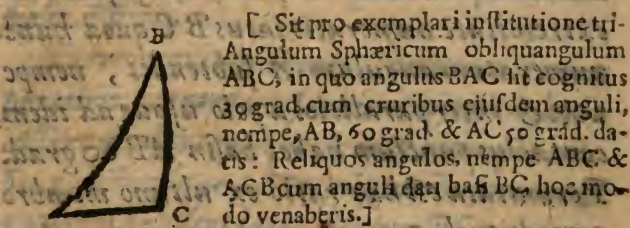 [ Sit pro exemplari institutione tri-
Angulum Sphæricum obliquangulum
ABC, in quo angulus BAC sit cognitus
30 grad. cum cruribus ejusdem anguli,
nempe, AB, 60 grad. & AC 50 grad. da-
tis: Reliquos angulos, nempe ABC &
ACB cum anguli dati basi BC, hoc mo-
do venaberis.]
B
C